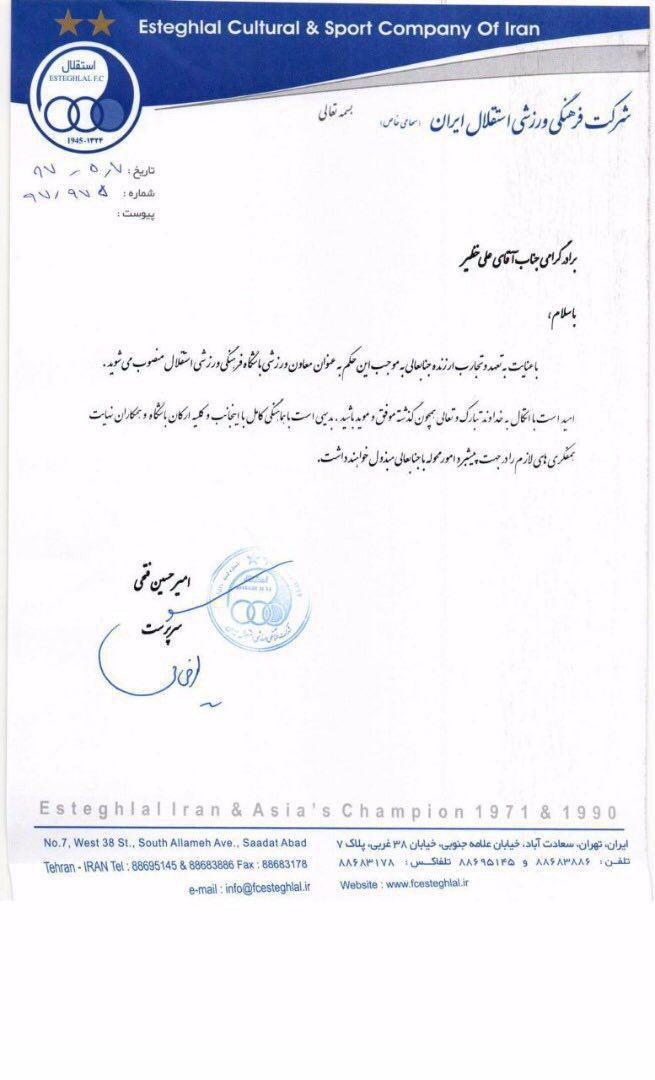 Esteghlal Cultural & Sport Company Of Iran
استقلال
ESTEGHLAL F.C
1945-۱۳۲۴
بسمه تعالی
شرکت فرهنگی ورزشی استقلال ایران (سهامی خاص)
تاریخ : ۹۷ - ۵,۷
شماره : ۹۷/۹۷۵
پیوست :
برادر گرامی جناب آقای علی خطیر
باسلام،
باعنایت به تعهد و تجارب ارزنده جنابعالی به موجب این حکم به عنوان معاون ورزشی باشگاه فرهنگی ورزشی استقلال منصوب می شوید .
امید است با اتکال به خداوند تبارک و تعالی همچون گذشته موفق و موید باشید . بدیهی است با هماهنگی کامل با اینجانب و کلیه ارکان باشگاه و همکاران نهایت
همفکری های لازم را در جهت پیشبرد امور محوله با جنابعالی مبذول خواهند داشت.
امیرحسین فتحی
سرپرست
استقلال
Esteghlal Iran & Asia's Champion 1971 & 1990
No.7, West 38 St., South Allameh Ave., Saadat Abad
Tehran - IRAN Tel : 88695145 & 88683886 Fax : 88683178
e-mail : info@fcesteghlal.ir
ایران، تهران، سعادت آباد، خیابان علامه جنوبی، خیابان ۳۸ غربی، پلاک ۷
تلفن : ۸۸۶۸۳۸۸۶ و ۸۸۶۹۵۱۴۵ تلفاکس : ۸۸۶۸۳۱۷۸
Website : www.fcesteghlal.ir